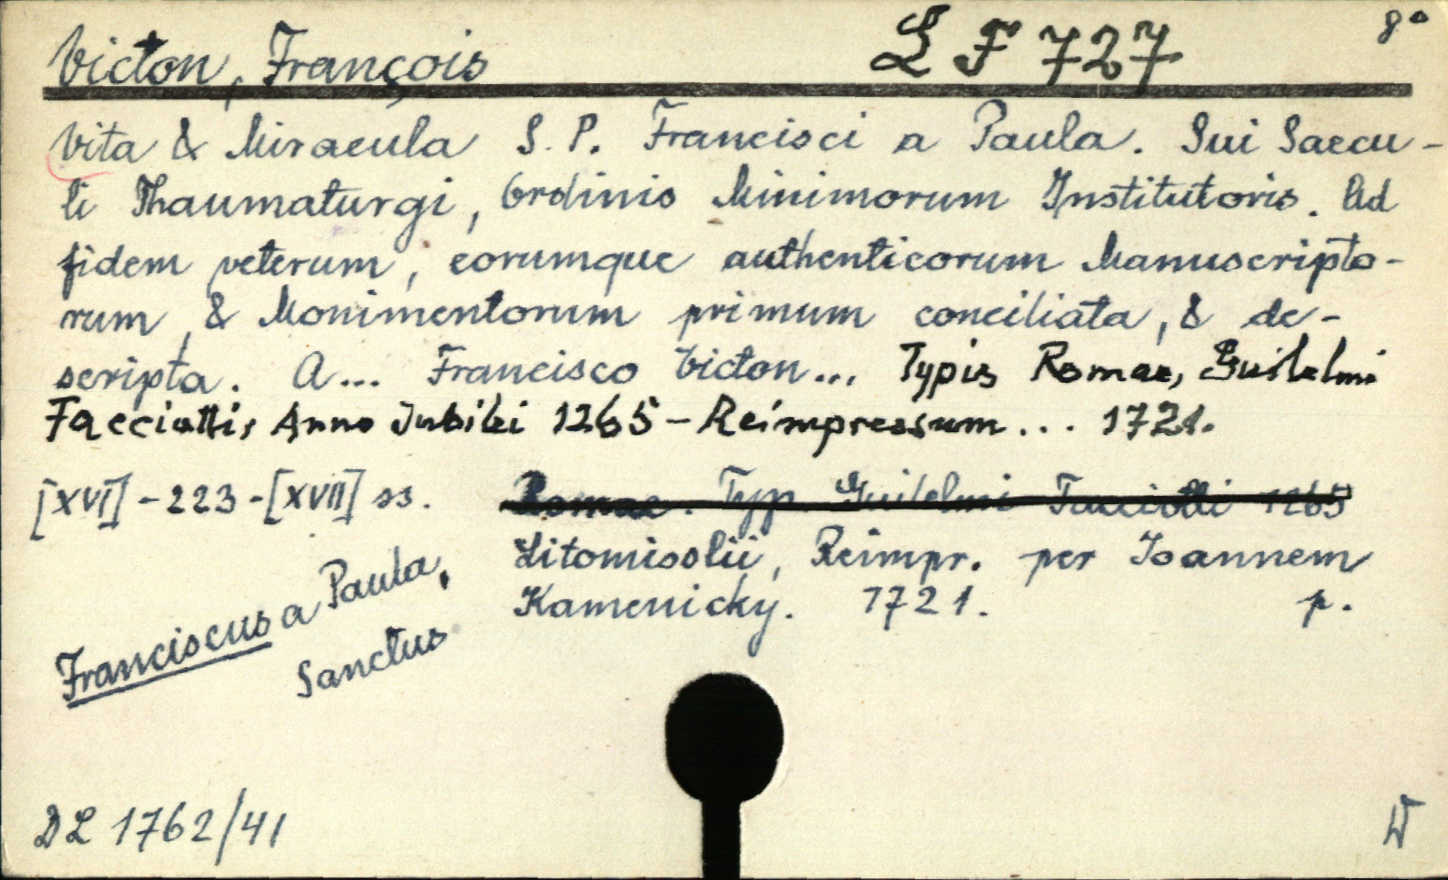 Victon, François L F 727 8°
Vita & Miracula S. P. Francisci a Paula. Sui Saecu-
li Thaumaturgi, Ordinis Minimorum Institutoris. Ad
fidem veterum, eorumque authenticorum Manuscripto-
rum, & Monimentorum primum conciliata, & de-
scripta. A... Francisco Victon... Typis Romae, Guilelmi
Facciotti, Anno Jubilei 1265 - Reimpressum... 1721.
[XVI] - 223 - [XVII] ss. Romae. Typ. Guilelmi Facciotti 1265
Litomisslii, Reimpr. per Joannem
Kamenicky. 1721. p.
Franciscus a Paula,
Sanctus
DL 1762/41 W